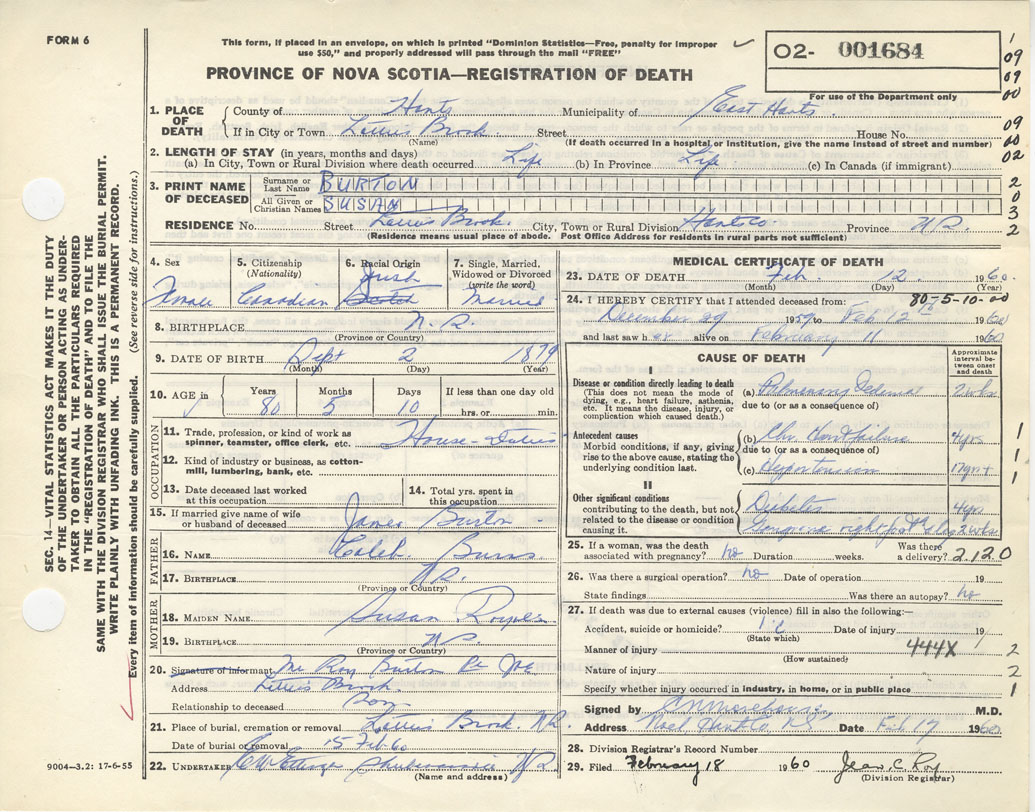 FORM 6
This form, if placed in an envelope, on which is printed "Dominion Statistics—Free, penalty for improper
use $50," and properly addressed will pass through the mail "FREE"
PROVINCE OF NOVA SCOTIA—REGISTRATION OF DEATH
02- 001684
For use of the Department only
1
09
09
00
09
00
02
2
0
3
2
1. PLACE OF DEATH
County of Hants Municipality of East Hants
If in City or Town Brook Street House No.
(Name) (If death occurred in a hospital or institution, give the name instead of street and number)
2. LENGTH OF STAY (in years, months and days)
(a) In City, Town or Rural Division where death occurred Life (b) In Province Life (c) In Canada (if immigrant)
3. PRINT NAME OF DECEASED
Surname or Last Name BURTON
All Given or Christian Names SUSAN
RESIDENCE No. Street Brook City, Town or Rural Division Hants Co Province N.S.
(Residence means usual place of abode. Post Office Address for residents in rural parts not sufficient)
4. Sex Female
5. Citizenship (Nationality) Canadian
6. Racial Origin Irish Scotch
7. Single, Married, Widowed or Divorced (write the word) Married
8. BIRTHPLACE N.S.
(Province or Country)
9. DATE OF BIRTH Sept 2 1879
(Month) (Day) (Year)
10. AGE in Years 80 Months 5 Days 10 If less than one day hrs. or min.
OCCUPATION
11. Trade, profession, or kind of work as spinner, teamster, office clerk, etc. House-Duties
12. Kind of industry or business, as cotton-mill, lumbering, bank, etc.
13. Date deceased last worked at this occupation
14. Total yrs. spent in this occupation
15. If married give name of wife or husband of deceased James Burton
FATHER
16. NAME Caleb Burns
17. BIRTHPLACE N.S.
(Province or Country)
MOTHER
18. MAIDEN NAME Susan
19. BIRTHPLACE N.S.
(Province or Country)
20. Signature of informant Mr Roy Burton
Address Brook
Relationship to deceased Son
21. Place of burial, cremation or removal Brook. N.S.
Date of burial or removal 15 Feb 60
22. UNDERTAKER Shubenacadie N.S.
(Name and address)
MEDICAL CERTIFICATE OF DEATH
23. DATE OF DEATH Feb 12 1960
(Month) (Day) (Year)
80-5-10-00
24. I HEREBY CERTIFY that I attended deceased from:
December 29 1959 to Feb 12th 1960
and last saw her alive on February 11 1960
CAUSE OF DEATH
Approximate interval between onset and death
I
Disease or condition directly leading to death
(This does not mean the mode of dying, e.g., heart failure, asthenia, etc. It means the disease, injury, or complication which caused death.)
(a) Pulmonary Edema 2 wks
due to (or as a consequence of)
Antecedent causes
Morbid conditions, if any, giving rise to the above cause, stating the underlying condition last.
(b) Chr Heart failure 4 yrs
due to (or as a consequence of)
(c) Hypertension
1
1
1
II
Other significant conditions
contributing to the death, but not related to the disease or condition causing it.
Diabetes 4 yrs
Gangrene right foot & leg 2 wks
25. If a woman, was the death associated with pregnancy? no Duration weeks. Was there a delivery?
2.120
26. Was there a surgical operation? no Date of operation 19
State findings Was there an autopsy? no
27. If death was due to external causes (violence) fill in also the following:—
Accident, suicide or homicide? Date of injury 19
(State which)
Manner of injury 444X
(How sustained)
Nature of injury
Specify whether injury occurred in industry, in home, or in public place
1
2
2
1
Signed by M.D.
Address Date Feb 17 1960
28. Division Registrar's Record Number
29. Filed February 18 1960 Jean C. Roy
(Division Registrar)
SEC. 14—VITAL STATISTICS ACT MAKES IT THE DUTY
OF THE UNDERTAKER OR PERSON ACTING AS UNDER-
TAKER TO OBTAIN ALL THE PARTICULARS REQUIRED
IN THE "REGISTRATION OF DEATH" AND TO FILE THE
SAME WITH THE DIVISION REGISTRAR WHO SHALL ISSUE THE BURIAL PERMIT.
WRITE PLAINLY WITH UNFADING INK. THIS IS A PERMANENT RECORD.
Every item of information should be carefully supplied. (See reverse side for instructions.)
9004-3.2: 17-6-55